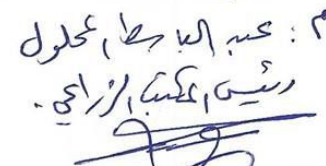 م : عبد الباسط امحلول
رئيس المكتب الزراعي.